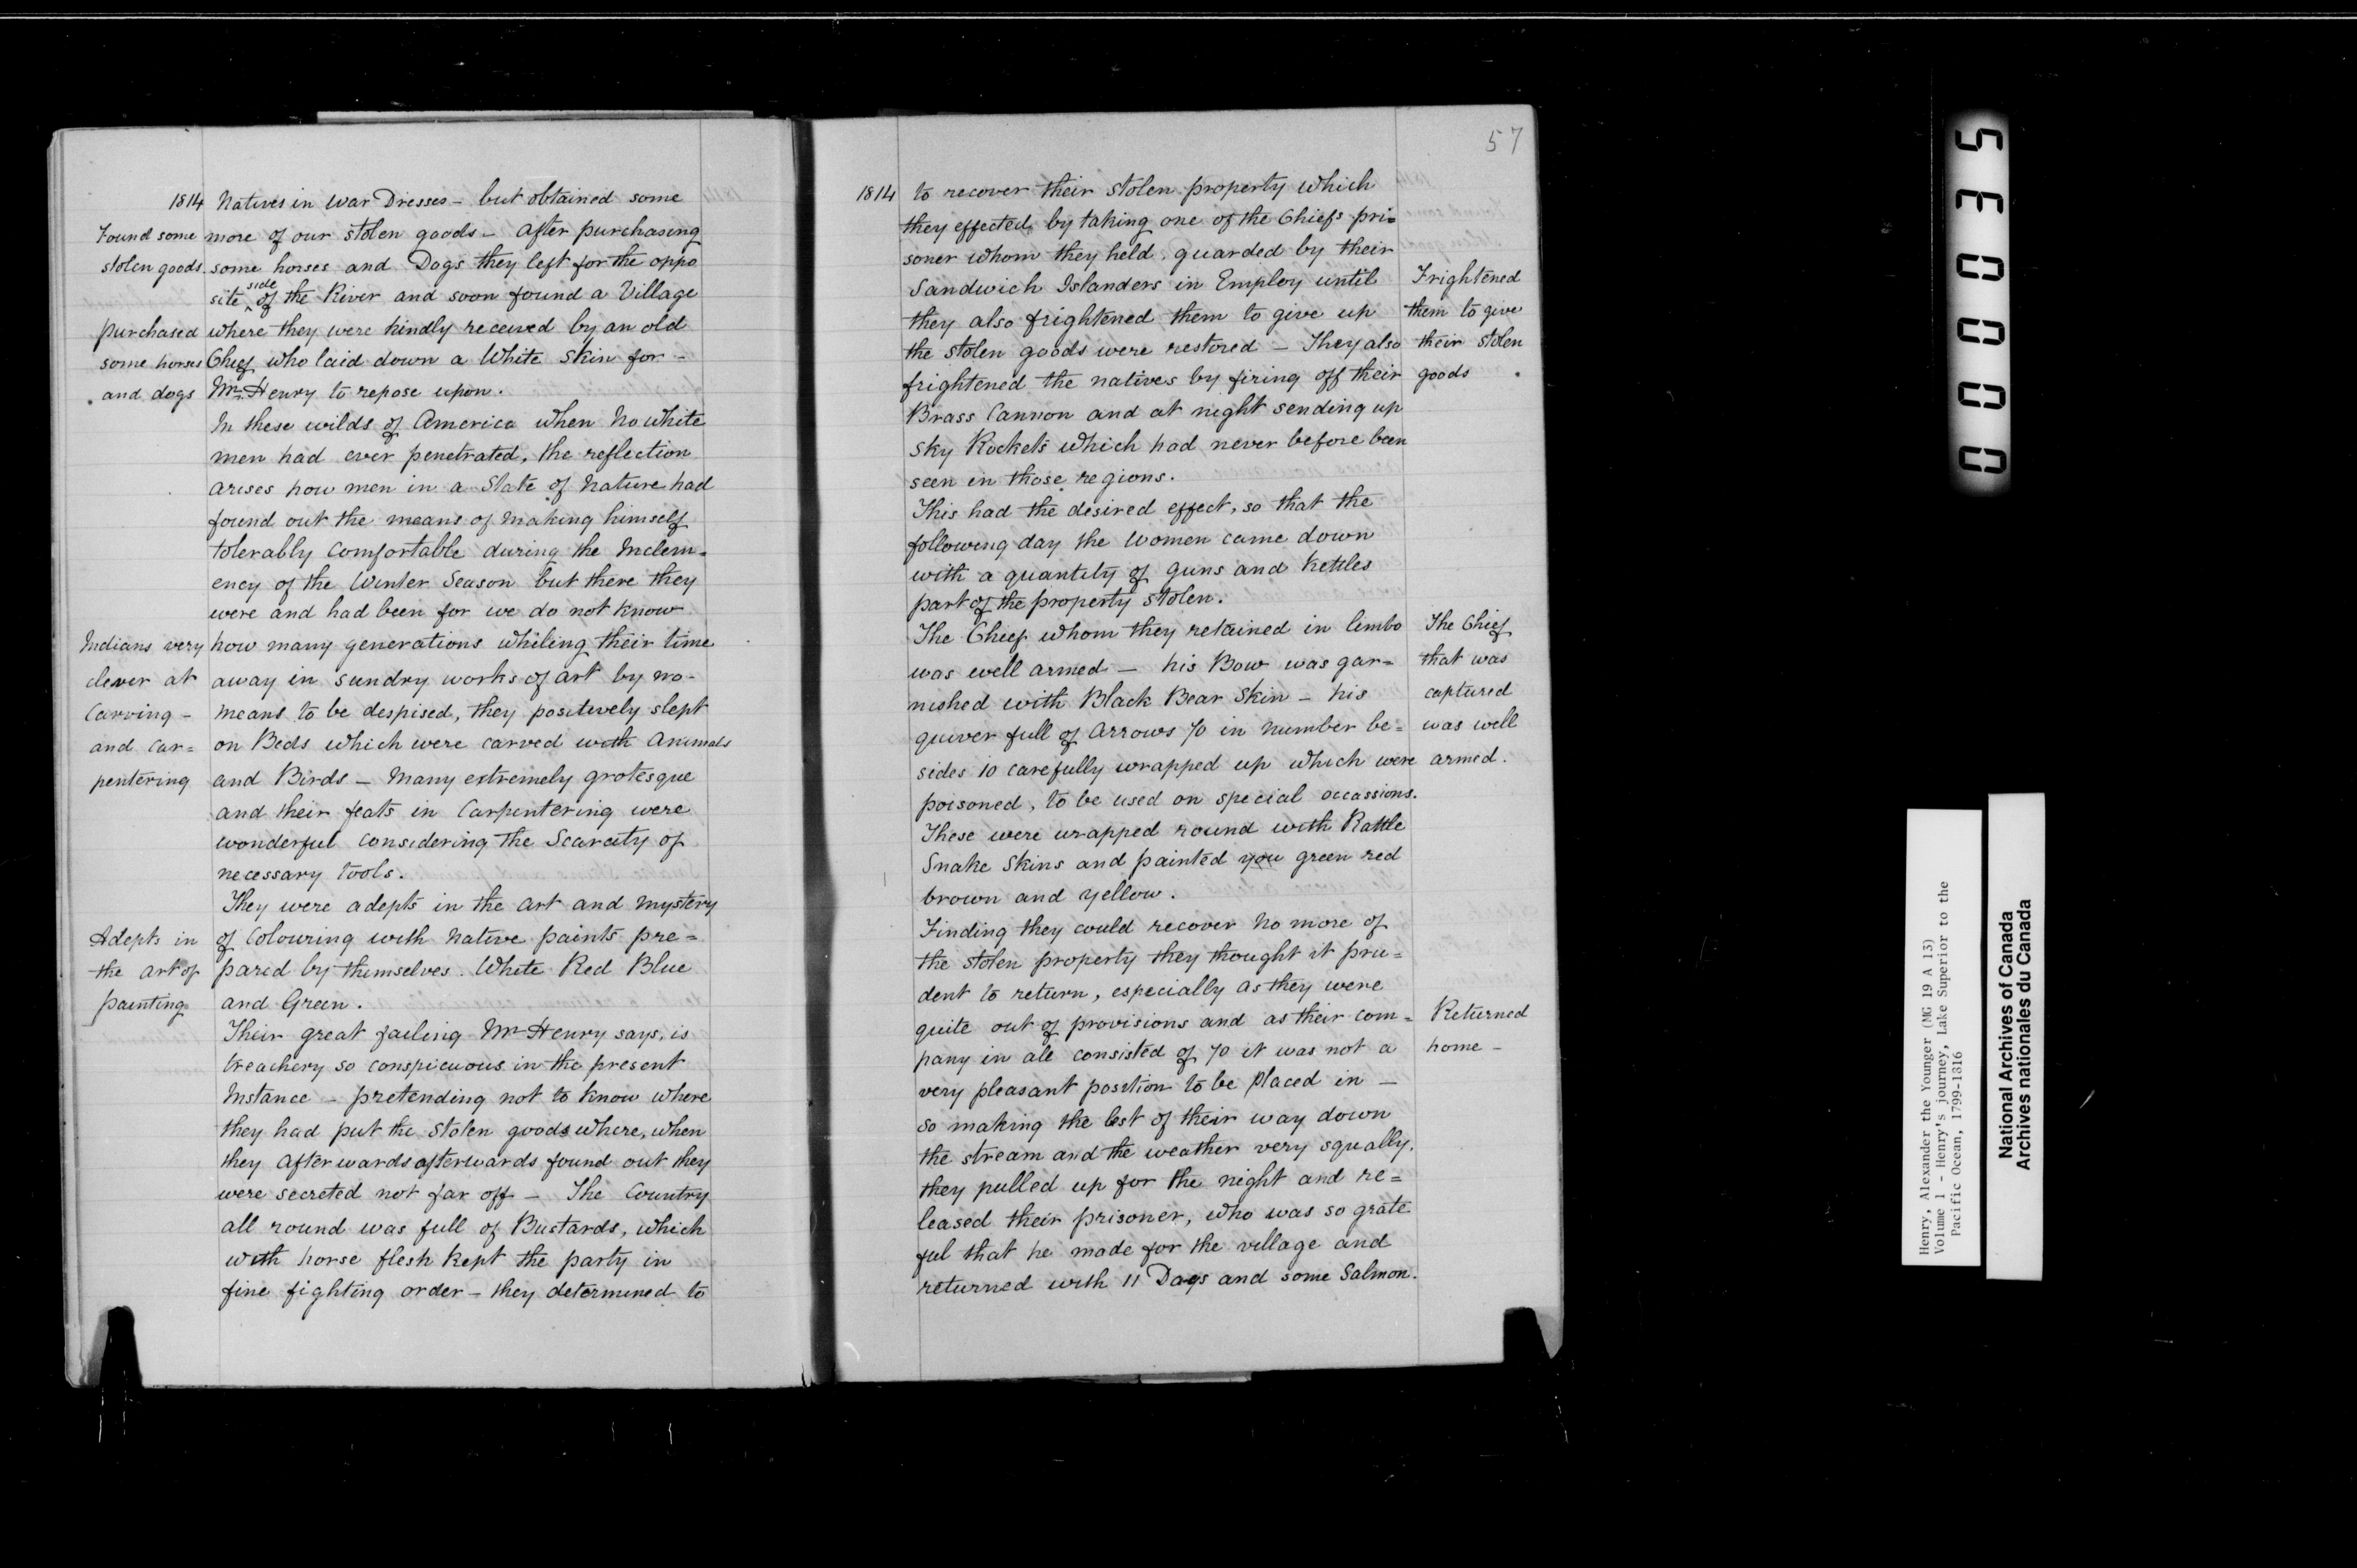 1814 Natives in War Dresses - but obtained some
Found some more of our stolen goods - After purchasing
stolen goods some horses and Dogs they left for the oppo
site side of the River and soon found a Village
purchased where they were kindly received by an old
some horses Chief who laid down a White skin for -
and dogs Mr Henry to repose upon.
In these wilds of America when No white
men had ever penetrated, the reflection
arises how men in a State of Nature had
found out the means of making himself
tolerably comfortable during the Inclem=
ency of the Winter Season but there they
were and had been for we do not know
Indians very how many generations whiling their time
clever at away in sundry works of art by no-
carving - means to be despised, they positively slept
and car= on Beds which were carved with animals
pentering and Birds - Many extremely grotesque
and their feats in Carpentering were
wonderful considering the Scarcity of
necessary tools.
They were adepts in the art and mystery
Adepts in of Colouring with native paints pre=
the art of pared by themselves. White Red Blue
painting and Green.
Their great failing Mr Henry says, is
treachery so conspicuous in the present
Instance - pretending not to know where
they had put the Stolen goods where, when
they afterwards afterwards found out they
were secreted not far off - The Country
all round was full of Bustards, which
with horse flesh kept the party in
fine fighting order - they determined to
57
1814 to recover their stolen property which
they effected by taking one of the Chiefs pri=
soner whom they held guarded by their
Sandwich Islanders in Employ until Frightened
they also frightened them to give up them to give
the stolen goods were restored - They also their stolen
frightened the natives by firing off their goods .
Brass Cannon and at night sending up
Sky Rockets which had never before been
seen in those regions.
This had the desired effect, so that the
following day the women came down
with a quantity of guns and kettles
part of the property stolen.
The Chief whom they retained in limbo The Chief
was well armed - his Bow was gar= that was
nished with Black Bear Skin - his captured
quiver full of Arrows 70 in number be= was well
sides 10 carefully wrapped up which were armed.
poisoned, to be used on special occassions.
These were wrapped round with Rattle
Snake Skins and painted you green red
brown and yellow.
Finding they could recover no more of
the stolen property they thought it pru=
dent to return, especially as they were
quite out of provisions and as their com= Returned
pany in all consisted of 70 it was not a home -
very pleasant position to be placed in -
so making the best of their way down
the stream and the weather very squally.
they pulled up for the night and re=
leased their prisoner, who was so grate
ful that he made for the village and
returned with 11 Dogs and some Salmon.
000035
Henry, Alexander the Younger (MG 19 A 13)
Volume 1 - Henry's journey, Lake Superior to the
Pacific Ocean, 1799-1816
National Archives of Canada
Archives nationales du Canada